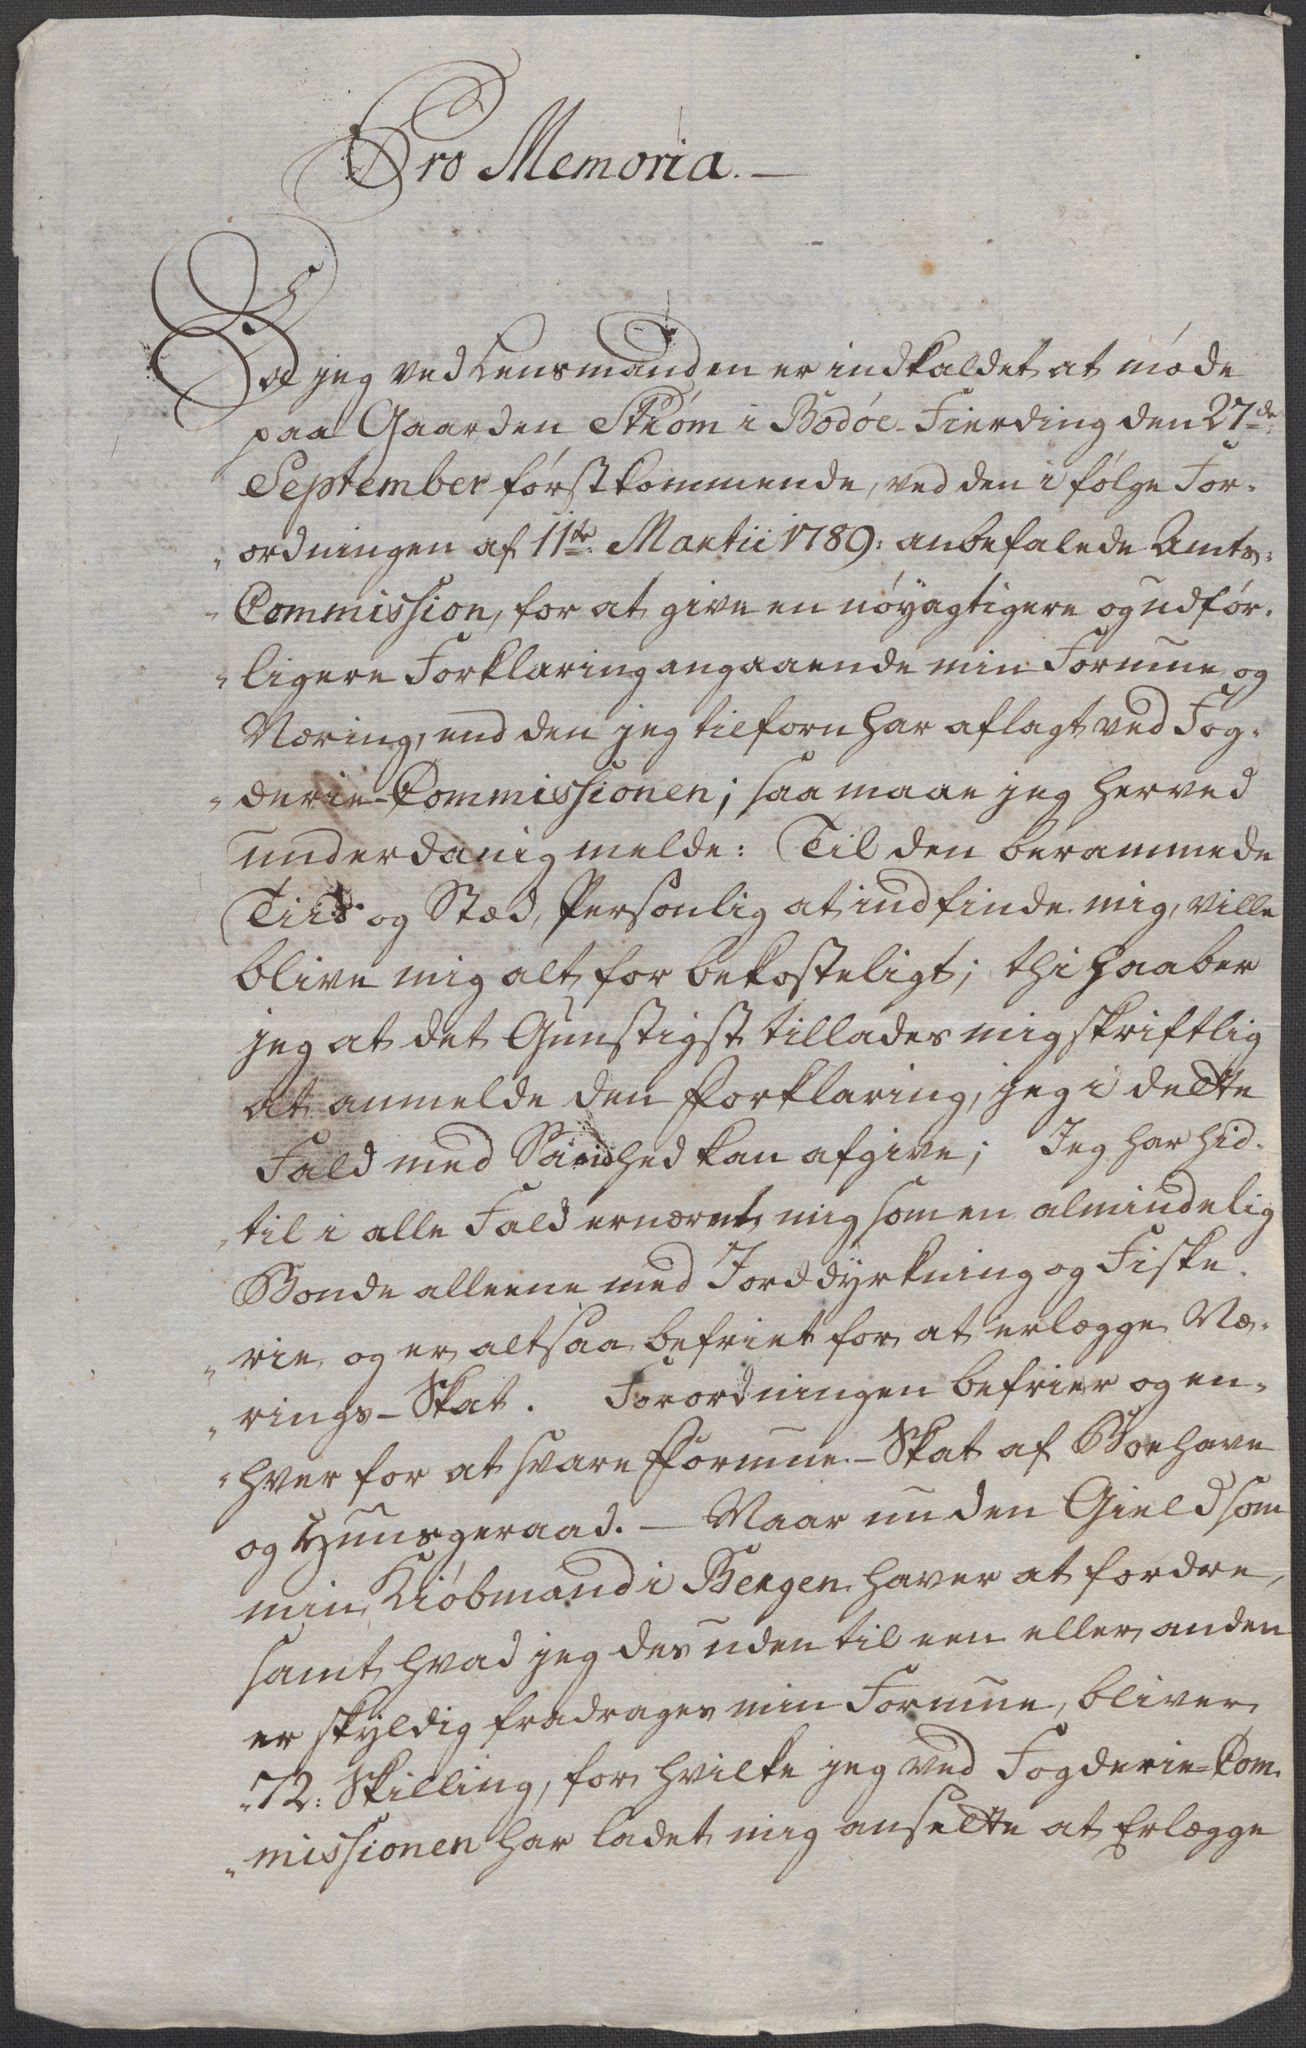 Pro Memoria. —
Da jeg ved Lensmanden er indkaldet at møde
paa Gaarden Strøm i Bodøe-Fierding den 27de
September førstkommende, ved den i følge For-
„ordningen af 11te Martii 1789: anbefalede Amts-
„Commission, for at give en nøyagtigere og udfør-
„ligere Forklaring angaaende min Formue og
Næring, end den jeg tilforn har aflagt ved Fog-
„derie-Commissionen; saa maae jeg herved
underdanig melde: Til den berammede
Tiid og Stæd, Personlig at indfinde mig, ville
blive mig alt for bekosteligt; thi haaber
jeg at det Gunstigst tillades mig skriftlig
at anmelde den Forklaring, jeg i dette
Fald med Sandhed kan afgive; Jeg har hid-
„til i alle Fald ernæret mig som en almindelig
Bonde alleene med Jorddyrkning og Fiske-
„rie, og er altsaa befriet for at erlægge Næ-
„rings-Skat. Forordningen befrier og en-
„hver for at svare Formue-Skat af Boehave
og Huusgeraad. — Naar nu den Gield som
min Kiøbmand i Bergen haver at fordre,
samt hvad jeg des uden til een eller anden
er skyldig fradrages min Formue, bliver
„72: Skilling, for hvilke jeg ved Fogderie-Com-
„missionen har ladet mig ansætte at Erlægge